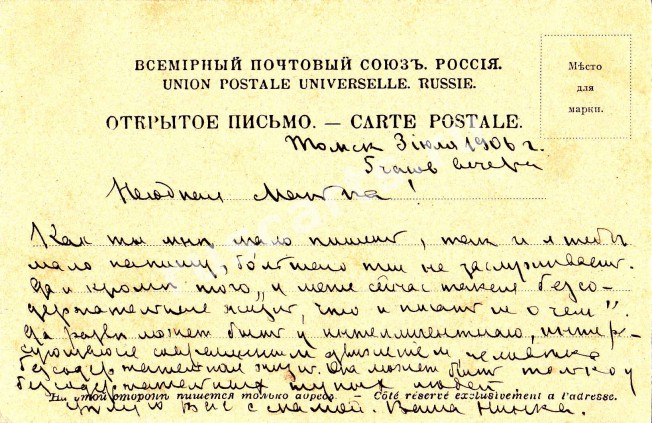 ВСЕМІРНЫЙ ПОЧТОВЫЙ СОЮЗЪ. РОССІЯ.
UNION POSTALE UNIVERSELLE. RUSSIE.
Мѣсто
для
марки.
ОТКРЫТОЕ ПИСЬМО. — CARTE POSTALE.
Томск 3 июля 1906 г.
5 часов вечера
Манта!
Как ты мнѣ мало пишешь, так и я тебѣ
мало напишу, большего ты не заслуживаешь.
Да и кромѣ того, "у меня сейчас такая бессо-
держательная жизнь, что и писать не о чем".
Да развѣ может быть у интеллигентнаго, интере-
сующагося современным движением, человѣка
безсодержательная жизнь. Она может быть только у
безсодержательных глупых людей
На этой сторонѣ пишется только адресъ. — Côté réservé exclusivement à l'adresse.
Цѣлую вас с мамой. Ваша Нинка.